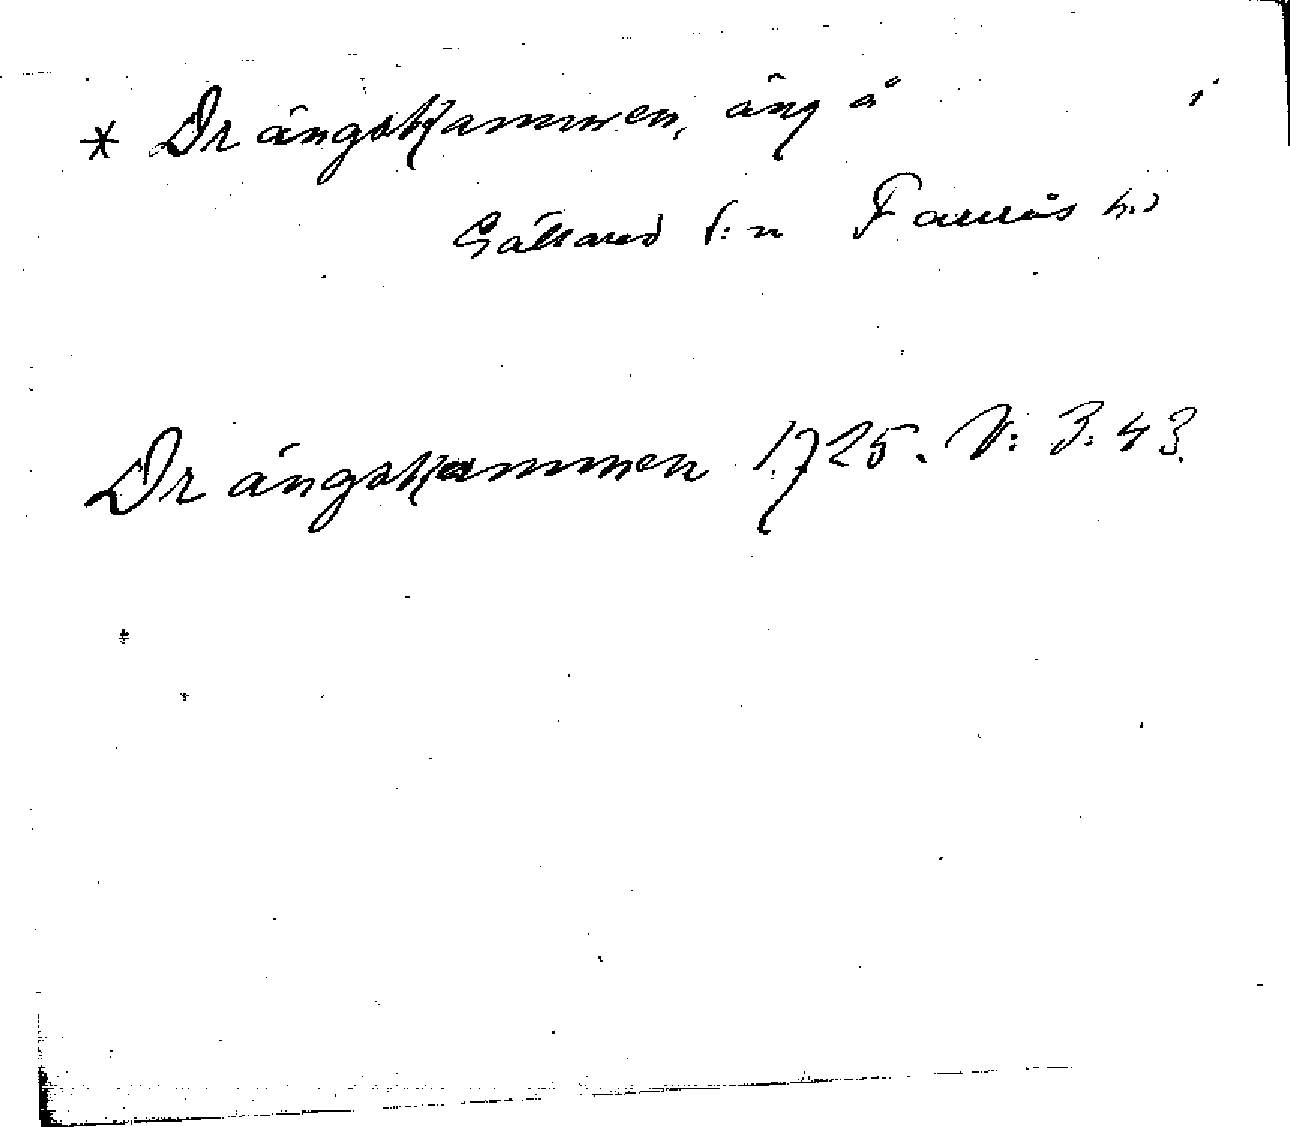 * Drängskammen, äng å i
Gällared s:n Faurås h.d
Drängskammen 1725. V: 3: 43.